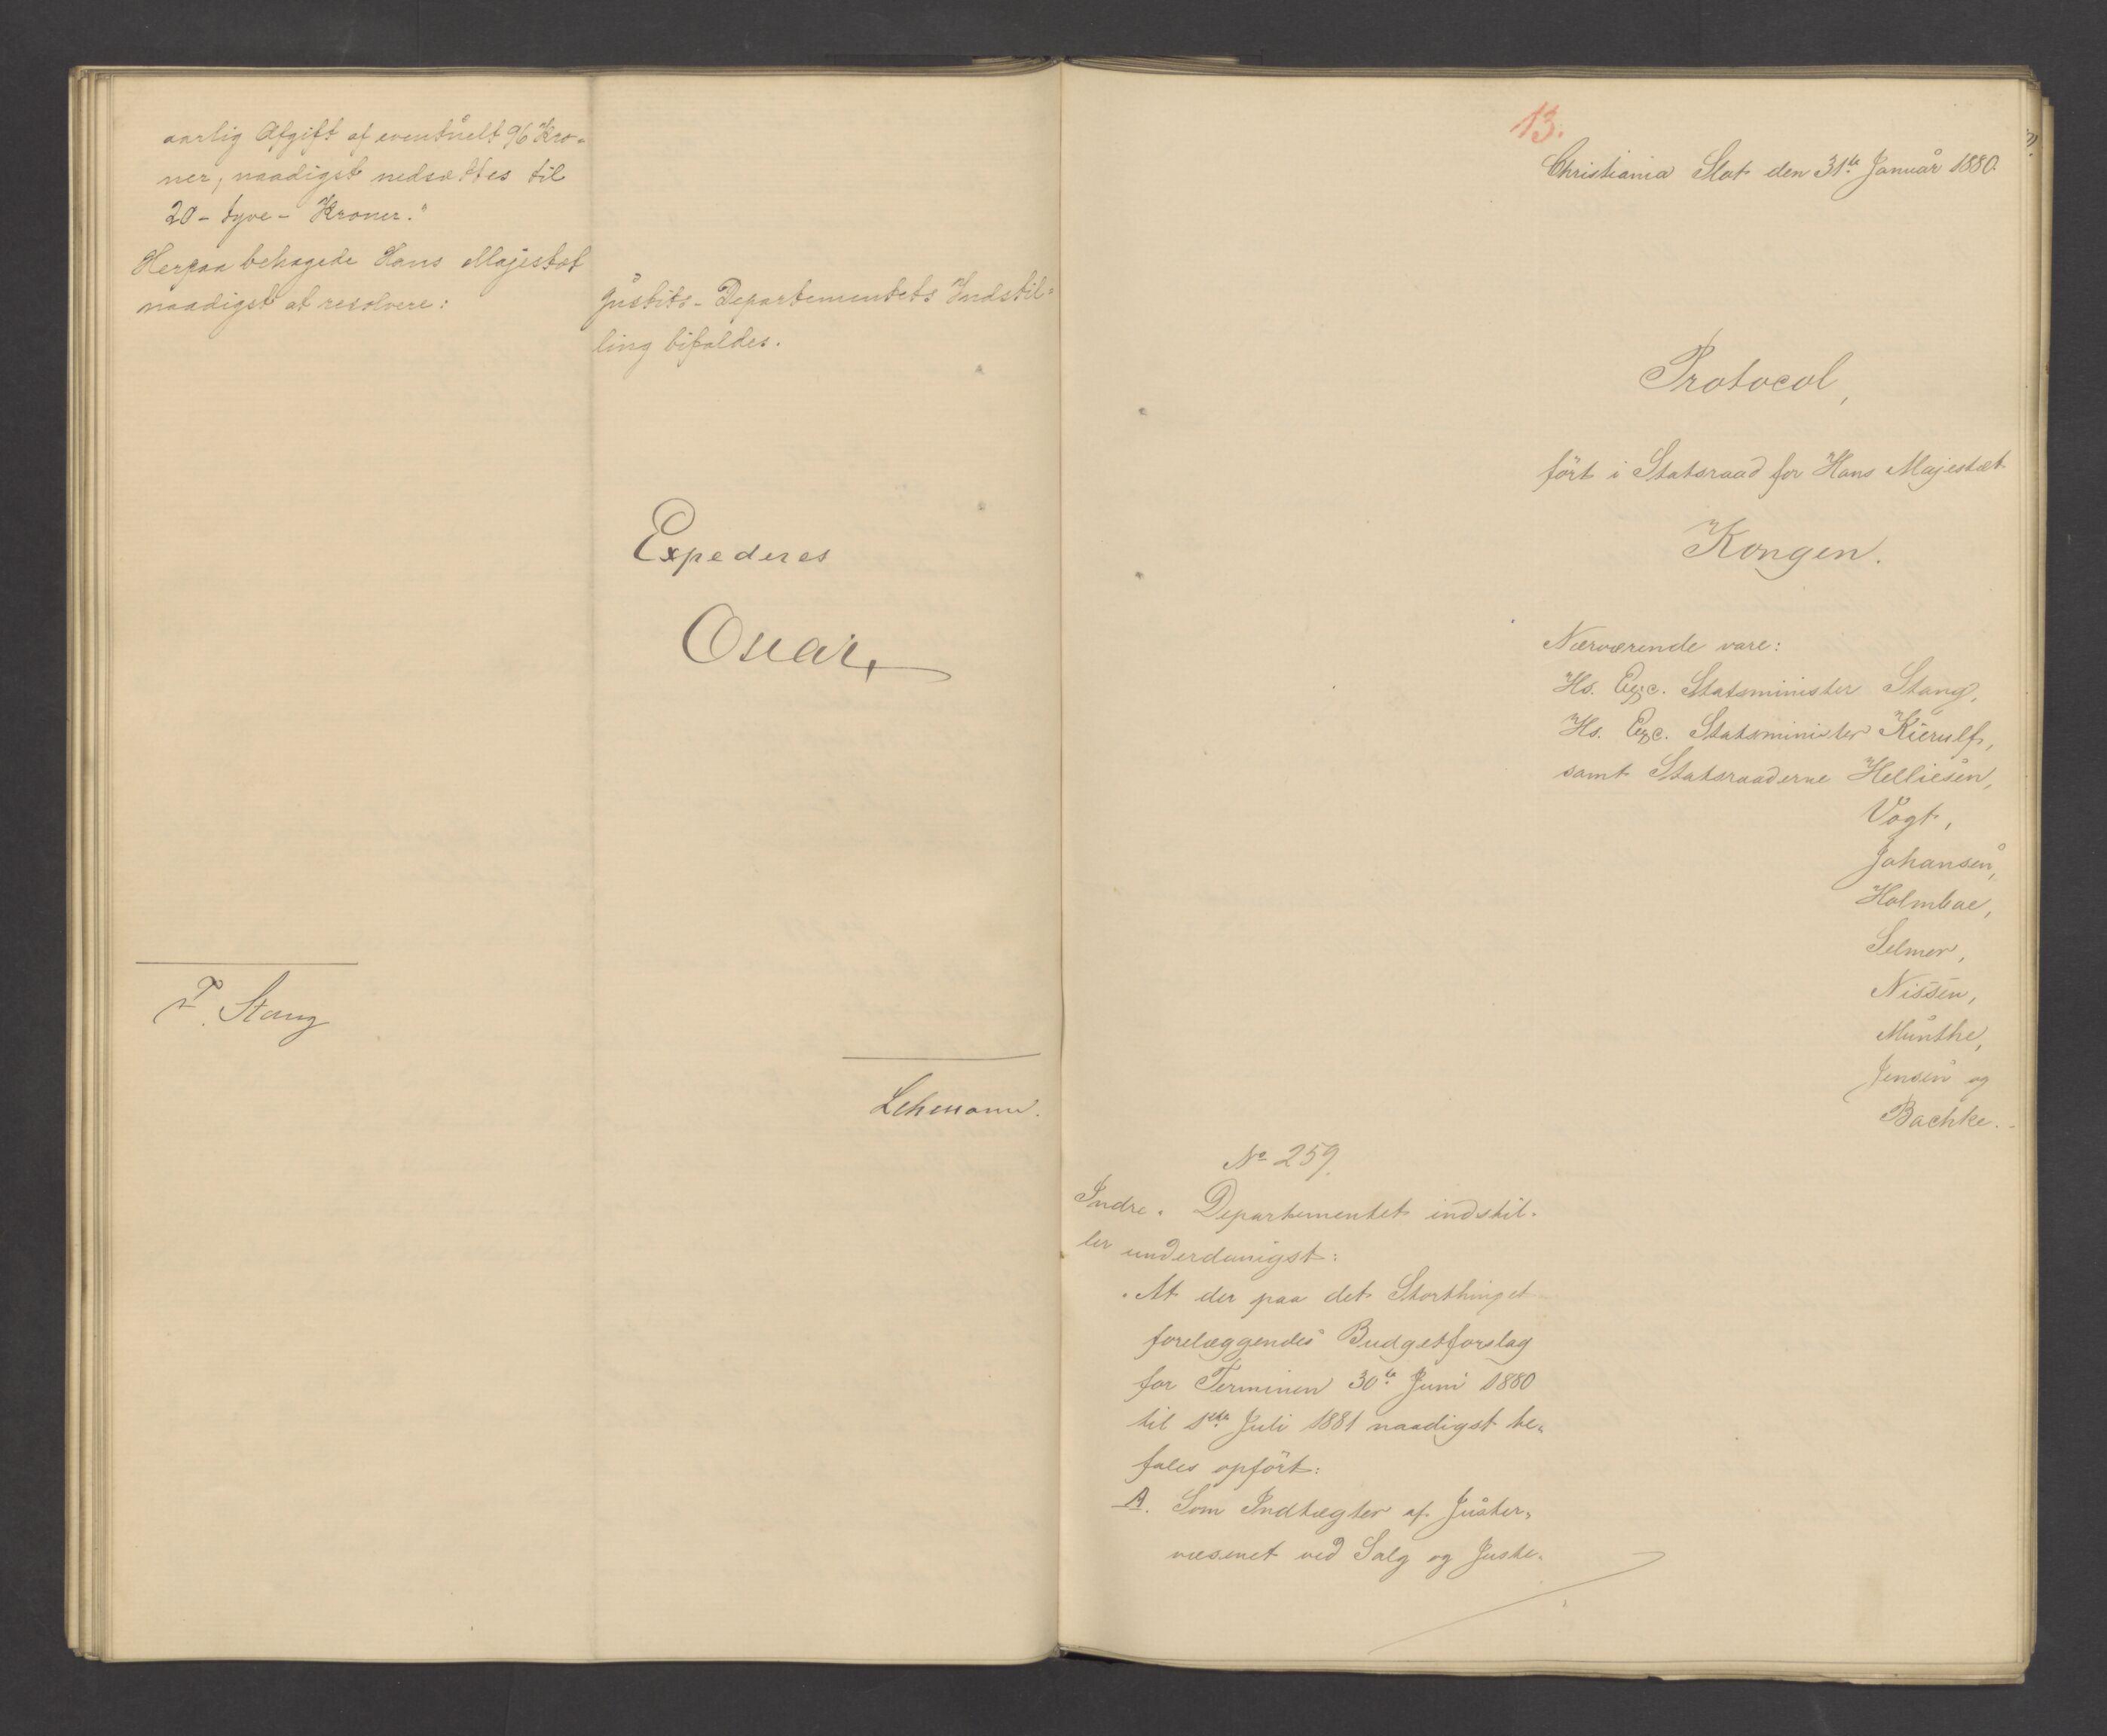 aarlig Afgift af eventuelt 96 Kro-
ner, naadigst nedsættes til
20 - tyve - Kroner."
Herpaa behagede Hans Majestæt
naadigst at resolvere:
Justits-Departementets Indstil-
ling bifaldes.
Expederes
Oscar
F. Stang
Lehmann.
13.
Christiania Slot den 31te Januar 1880.
Protocol,
ført i Statsraad for Hans Majestæt
Kongen.
Nærværende vare:
Hs. Exc. Statsminister Stang,
Hs. Exc. Statsminister Kierulf,
samt Statsraaderne Helliesen,
Vogt,
Johansen,
Holmboe,
Selmer,
Nissen,
Munthe,
Jensen og
Bachke.
No 259.
Indre-Departementet indstil-
ler underdanigst:
"At der paa det Storthinget
forelæggendes Budgetforslag
for Terminen 30te Juni 1880
til 1ste Juli 1881 naadigst be-
fales opført:
A. Som Indtægter af Juster-
væsenet ved Salg og Juste-